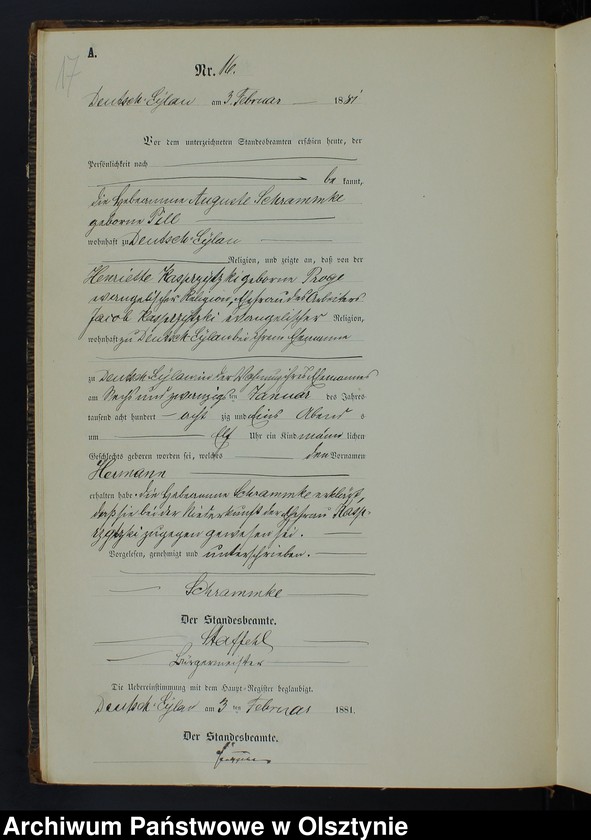 17
A.
Nr. 16.
Deutsch-Eylau am 3. Februar 1881
Vor dem unterzeichneten Standesbeamten erschien heute, der
Persönlichkeit nach
be kannt,
die Hebeamme Auguste Schrammke
geborne Till
wohnhaft zu Deutsch-Eylau
Religion, und zeigte an, daß von der
Henriette Kasprzytzki geborne Proge
evangelischer Religion, Ehefrau des Arbeiters
Jacob Kasprzytzki evangelischer Religion,
wohnhaft zu Deutsch-Eylau bei ihrem Ehemanne
zu Deutsch-Eylau in der Wohnung ihres Ehemannes
am Sechs und zwanzigsten Januar des Jahres
tausend acht hundert acht zig und Eins Abends
um Elf Uhr ein Kind männ lichen
Geschlechts geboren worden sei, welches den Vornamen
Hermann
erhalten habe. Die Hebeamme Schrammke erklärt,
daß sie bei der Niederkunft der Ehefrau Kasp-
rzytzki zugegen gewesen sei.
Vorgelesen, genehmigt und unterschrieben.
Schrammke
Der Standesbeamte.
Staffehl
Bürgermeister
Die Uebereinstimmung mit dem Haupt-Register beglaubigt.
Deutsch-Eylau am 3 ten Februar 1881.
Der Standesbeamte.
Archiwum Państwowe w Olsztynie